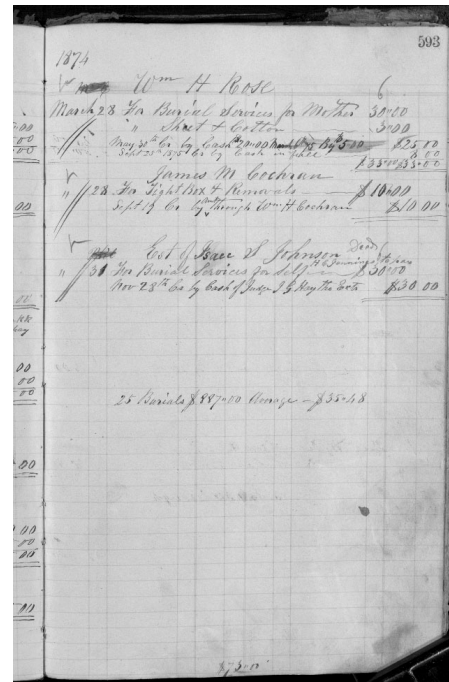 593
1874
Wm H Rose
March 28 For Burial Services for Mother 30.00
" Sheet & Cotton 3.00
May 30th Cr by Cash 20.00 By 5.00 $25.00
Sept 25th 1875 Cr by Cash in full 8.00
$33.00 $33.00
James M Cochran
" 28 For Tight Box & Removals $10.00
Sept 19 Cr by through Wm H Cochran $10.00
Est of Isaac S Johnson Dead
" 31 For Burial Services for Self H Jennings to pay $30.00
Nov 28th Cr by Cash of Judge J G Exct $30.00
25 Burials $887.00 Average – $35.48